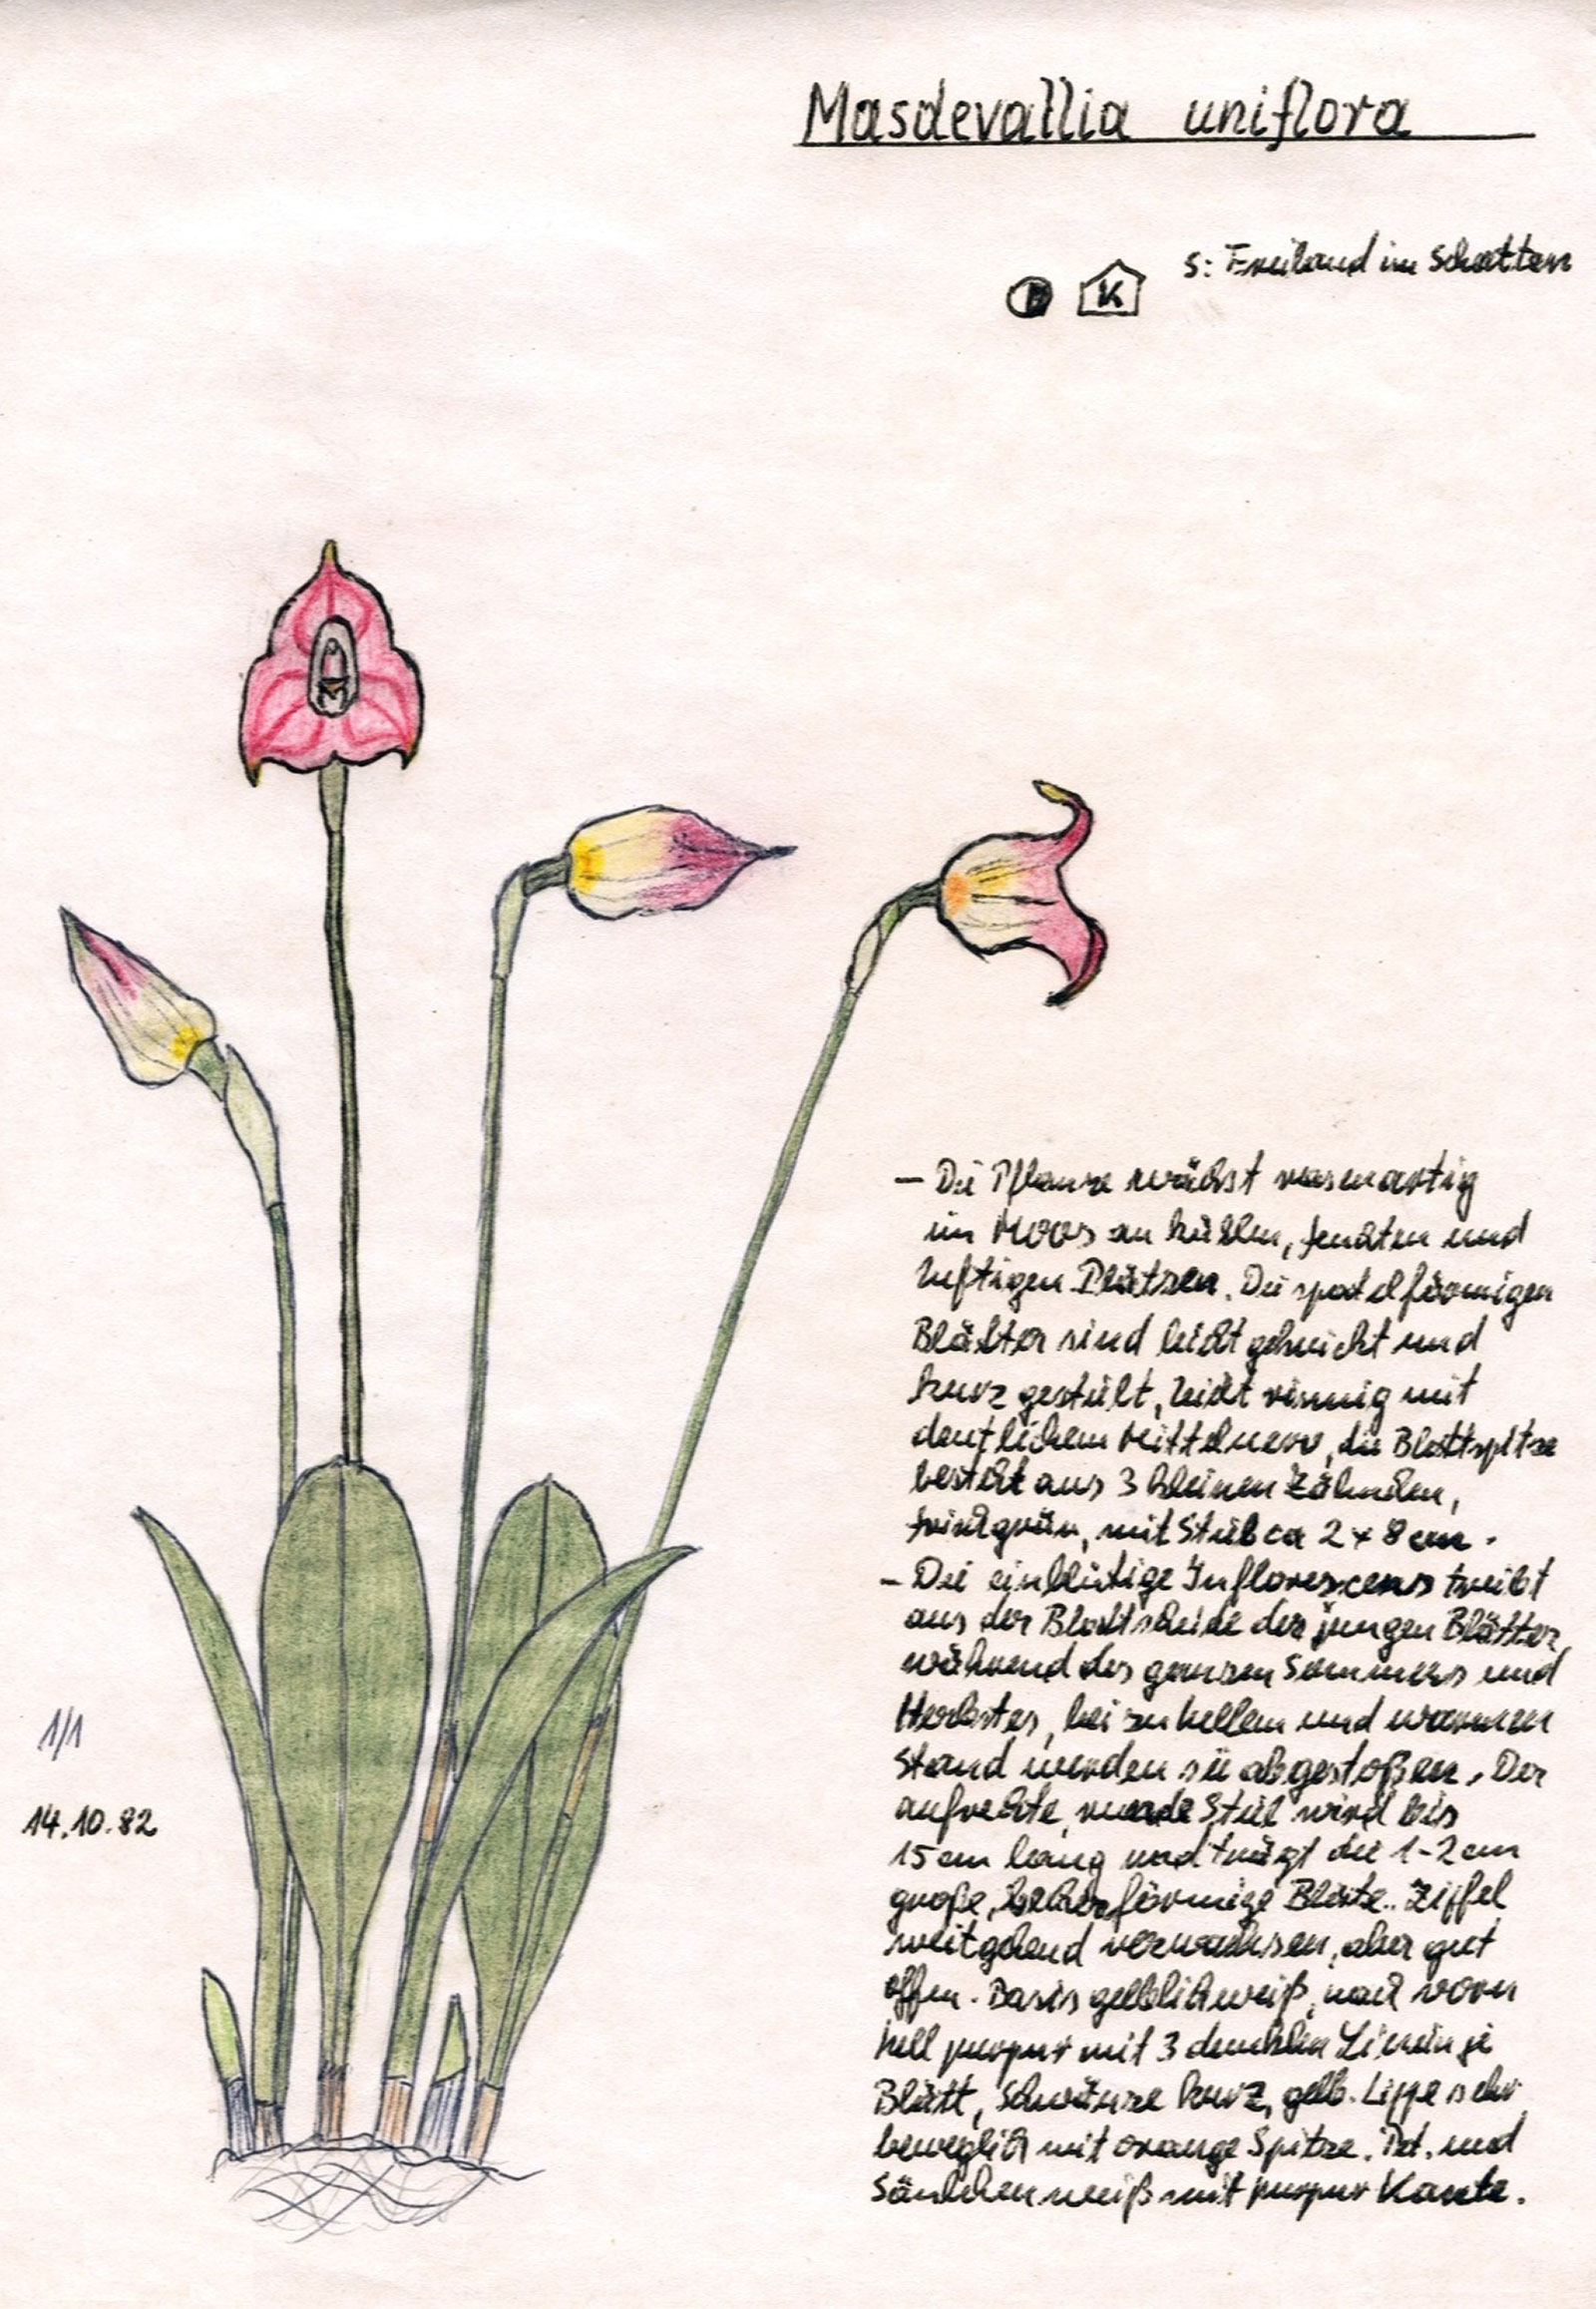 Masdevallia uniflora
K
S: Freiland im Schatten
– Die Pflanze wächst rasenartig
im Moos an kühlen, feuchten und
luftigen Plätzen. Die spatelförmigen
Blätter sind leicht geknickt und
kurz gestielt, leicht rinnig mit
deutlichem Mittelnerv, die Blattspitze
besteht aus 3 kleinen Zähnchen,
frischgrün, mit Stiel ca 2 x 8 cm.
– Die einblütige Infloreszens treibt
aus der Blattscheide der jungen Blätter,
während des ganzen Sommers und
Herbstes, bei zu hellem und warmen
Stand werden sie abgestoßen. Der
aufrechte, runde Stiel wird bis
15 cm lang und trägt die 1-2 cm
große, becherförmige Blüte. Zipfel
weitgehend verwachsen, aber gut
offen. Basis gelblichweiß, nach vorn
hell purpur mit 3 dunklen Linien je
Blatt, Schwänze kurz, gelb. Lippe sehr
beweglich mit orange Spitze. Pet. und
Säulchen weiß mit purpur Kante.
1/1
14.10.82